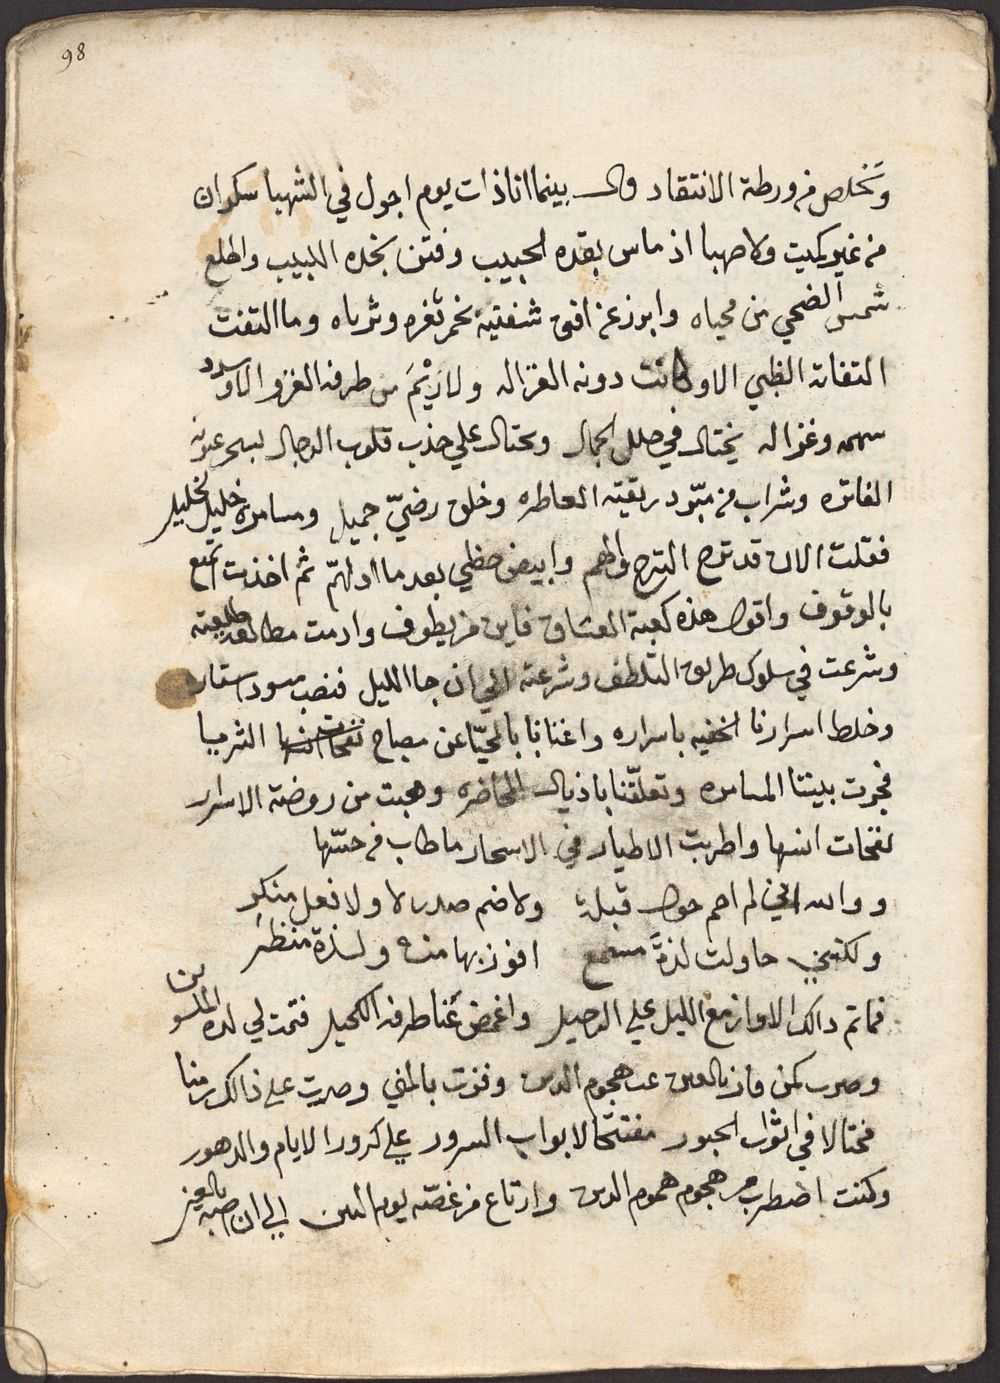 98
وتخلص من ورطة الانتقاد قال بينما انا ذات يوم اجول في الشهبا سكران
من غير كميت ولا صهبا اذ ماس بقده الحبيب وفتن بخده اللبيب واطلع
شمس الضحي من محياه وابرز عن افق شفتيه خمر ثغره وثرياه وما التفت
التفاتة الظبي الا وكانت دونه الغزاله ولا رَيْمَ من طرفه الغزو الا وسدد
سهمه وغزاله يختال في حلل الجمال ويحتال علي جذب قلوب الرجال بسحر عيونه
الفاتره وشراب من مبّرد ريقته العاطره وخلق رضيّ جميل ومسامرة خليل لخليل
فقلت الان قد نزح الترح والهم وابيض حظي بعد ما ادلهمّ ثم اخذت اتمتع
بالوقوف واقول هذه كعبة العشاق فاين من يطوف وادمت مطالعة طلعته
وشرعت في سلوك طريق التلطف وشرعته الي ان جا الليل فنصب سود استاره
وخلط اسرارنا الخفيه باسراره واغنانا بالمحيّا عن مصباح الثريا
فجرت بيننا المسامره وتعلّقنا باذيال المحاضره وهبت من روضة الاسرار
نفحات انسها واطربت الاطيار في الاسحار ما طاب من حسّها
ووالله اني لم احم حول قبلة ولا ضم صدر لا ولا فعل منكرِ
ولكنني حاولت لذة مسمع افوز بها منه ولذة منظرِ
فما تم ذالك الا وازمع الليل علي الرحيل واغمض عنا طرفه الكحيل فتمت لي لذة الملسوين
وصرت كمن فاز بالعين عند هجوم الدين وفزت بالمني وصرت علي ذالك زمنا
مختالا في اثواب الحبور مفتتحا لابواب السرور علي كرور الايام والدهور
وكنت اضطرب من هجوم هموم الدين وارتاع من غصّة يوم البين الي ان